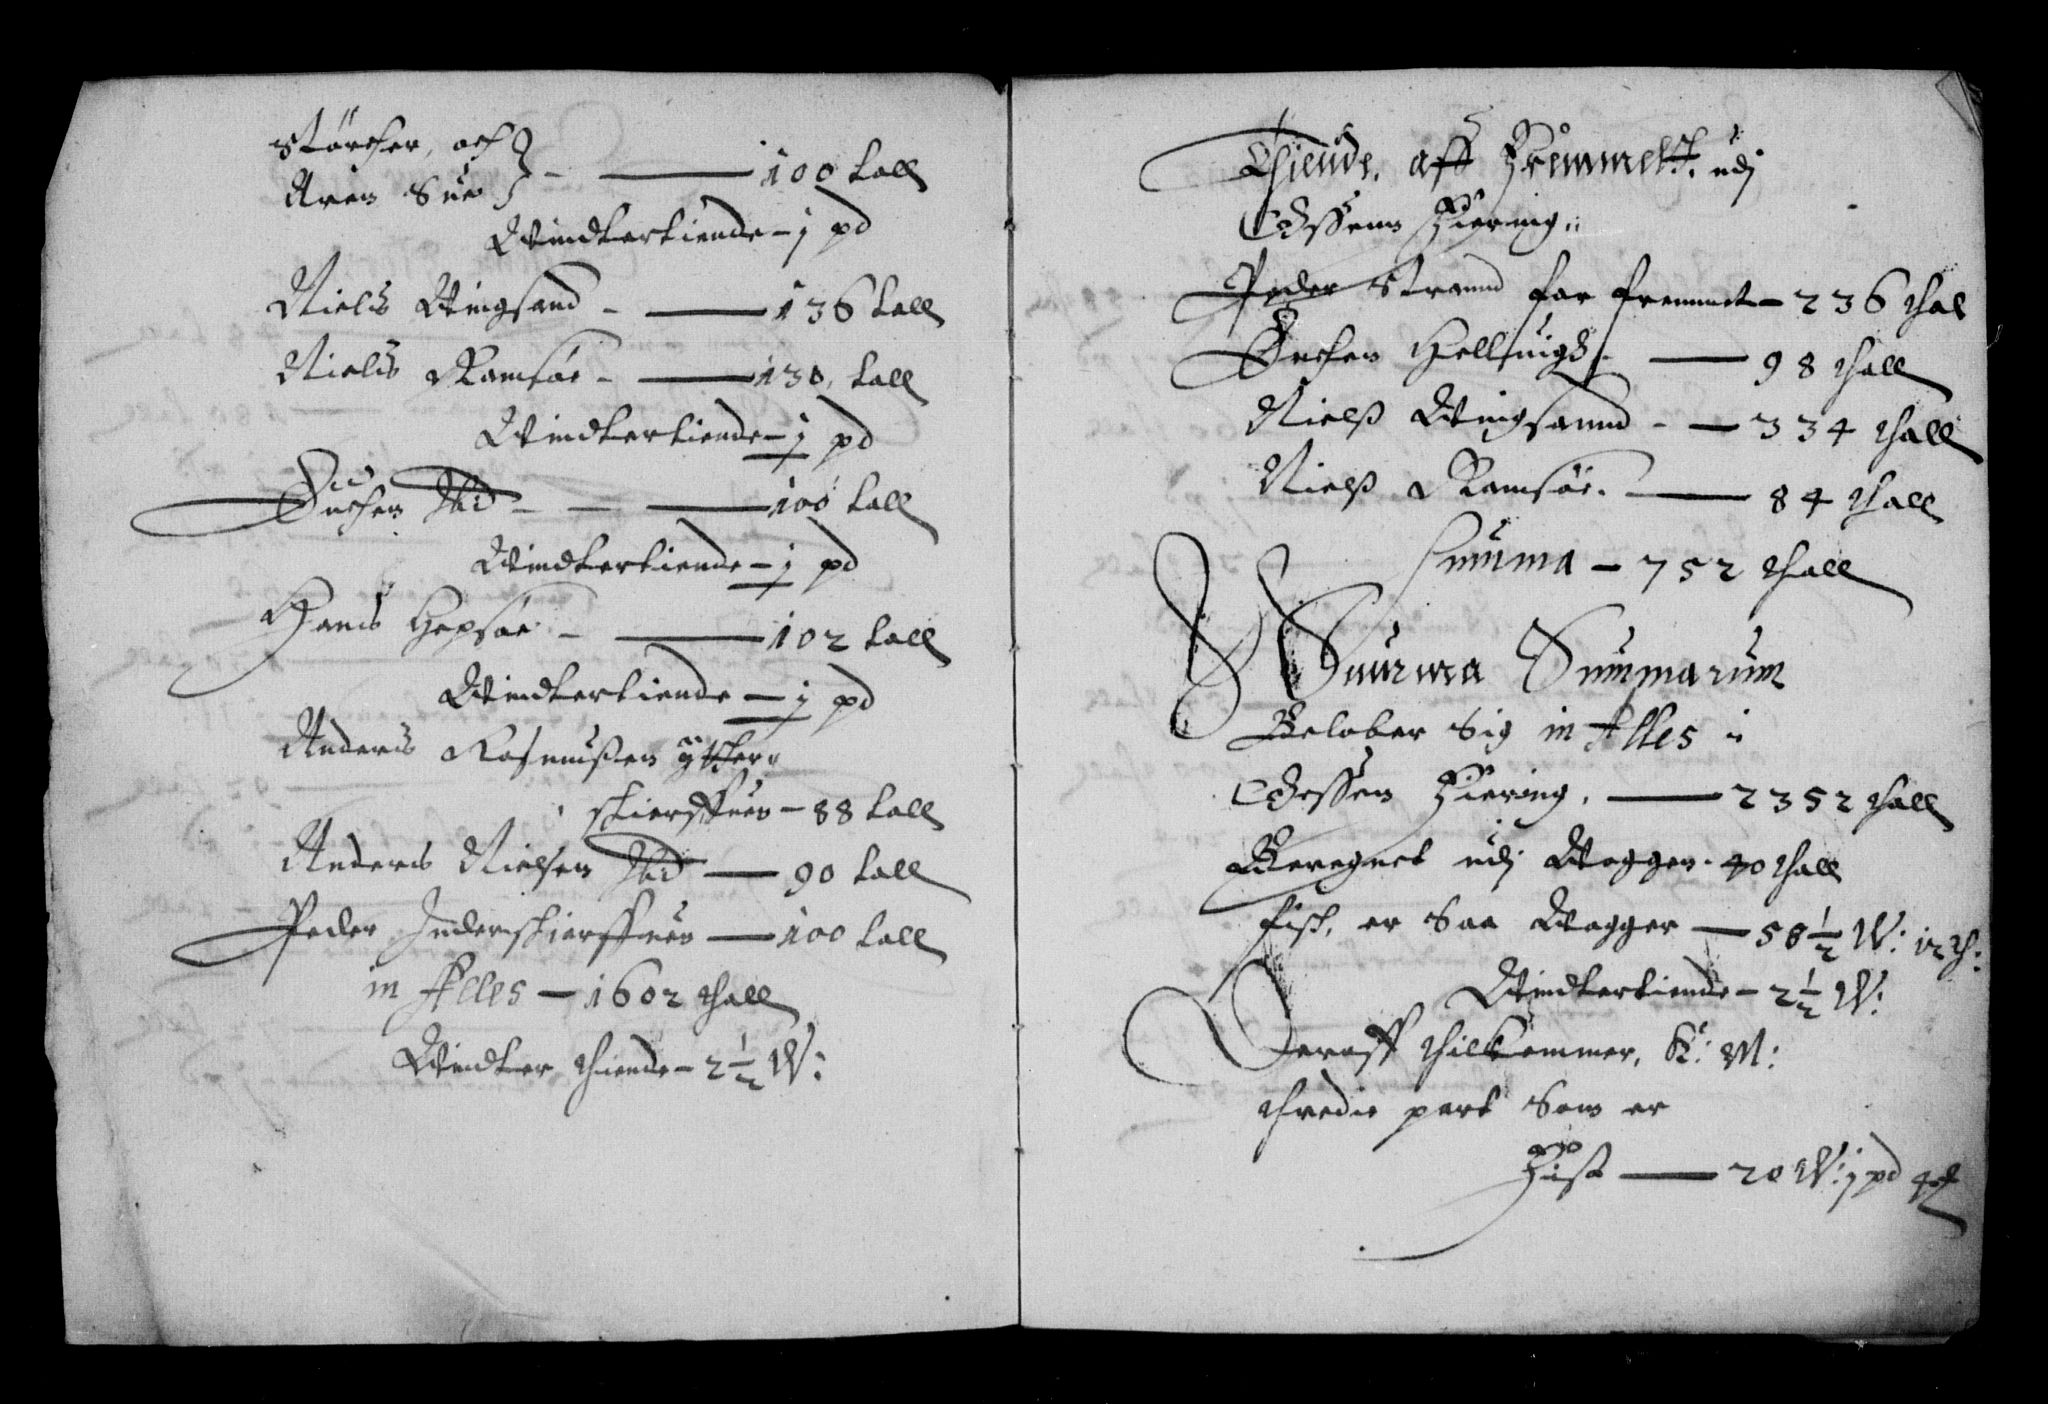 Størcher, och
Aren Sue — 100 tall
Windtertiende – j pd
Niels Wingsand — 136 tall
Niels Ramsøe — 130 tall
Windtertiende – j pd
Jochen Ibid — 100 tall
Windtertiende – j pd
Hans Hepsøe — 102 tall
Windtertiende – j pd
Anders Rasmußen ÿtter
skierffuen – 88 tall
Anders Nielsen Ibid — 90 tall
Peder Inderskierffuen — 100 tall
in Alles – 1602 thall
Windter thiende – 2½ W:
Thiende. aff Fremmett. udj
Oessens Fiering
Peder Strannd for fremmet – 236 thal
Jochen Hellsuigs — 98 thall
Nielß Wingsannd — 334 thall
Nielß Ramsøe. — 84 thall
Summa – 752 thall
Summa Summarum
Beløber Sig in Alles i
Oessen Fiering. — 2352 thall
Beregnet udj Wogger. 40 thall
fisk, er Saa Wogger — 58½ W: 12 th:
Windtertiende – 2½ W:
Deraff thilkommer, K: M:
thredie part Som er
Fisk — 20 W: j pd